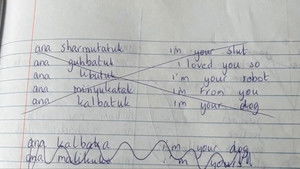 ana sharmutatuk i'm your slut
ana guhbatuk i loved you so
ana libutuk i'm your robot
ana minyukatak im from you
ana kalbatuk im your dog
ana kalbaka i'm your dog
ana i'm